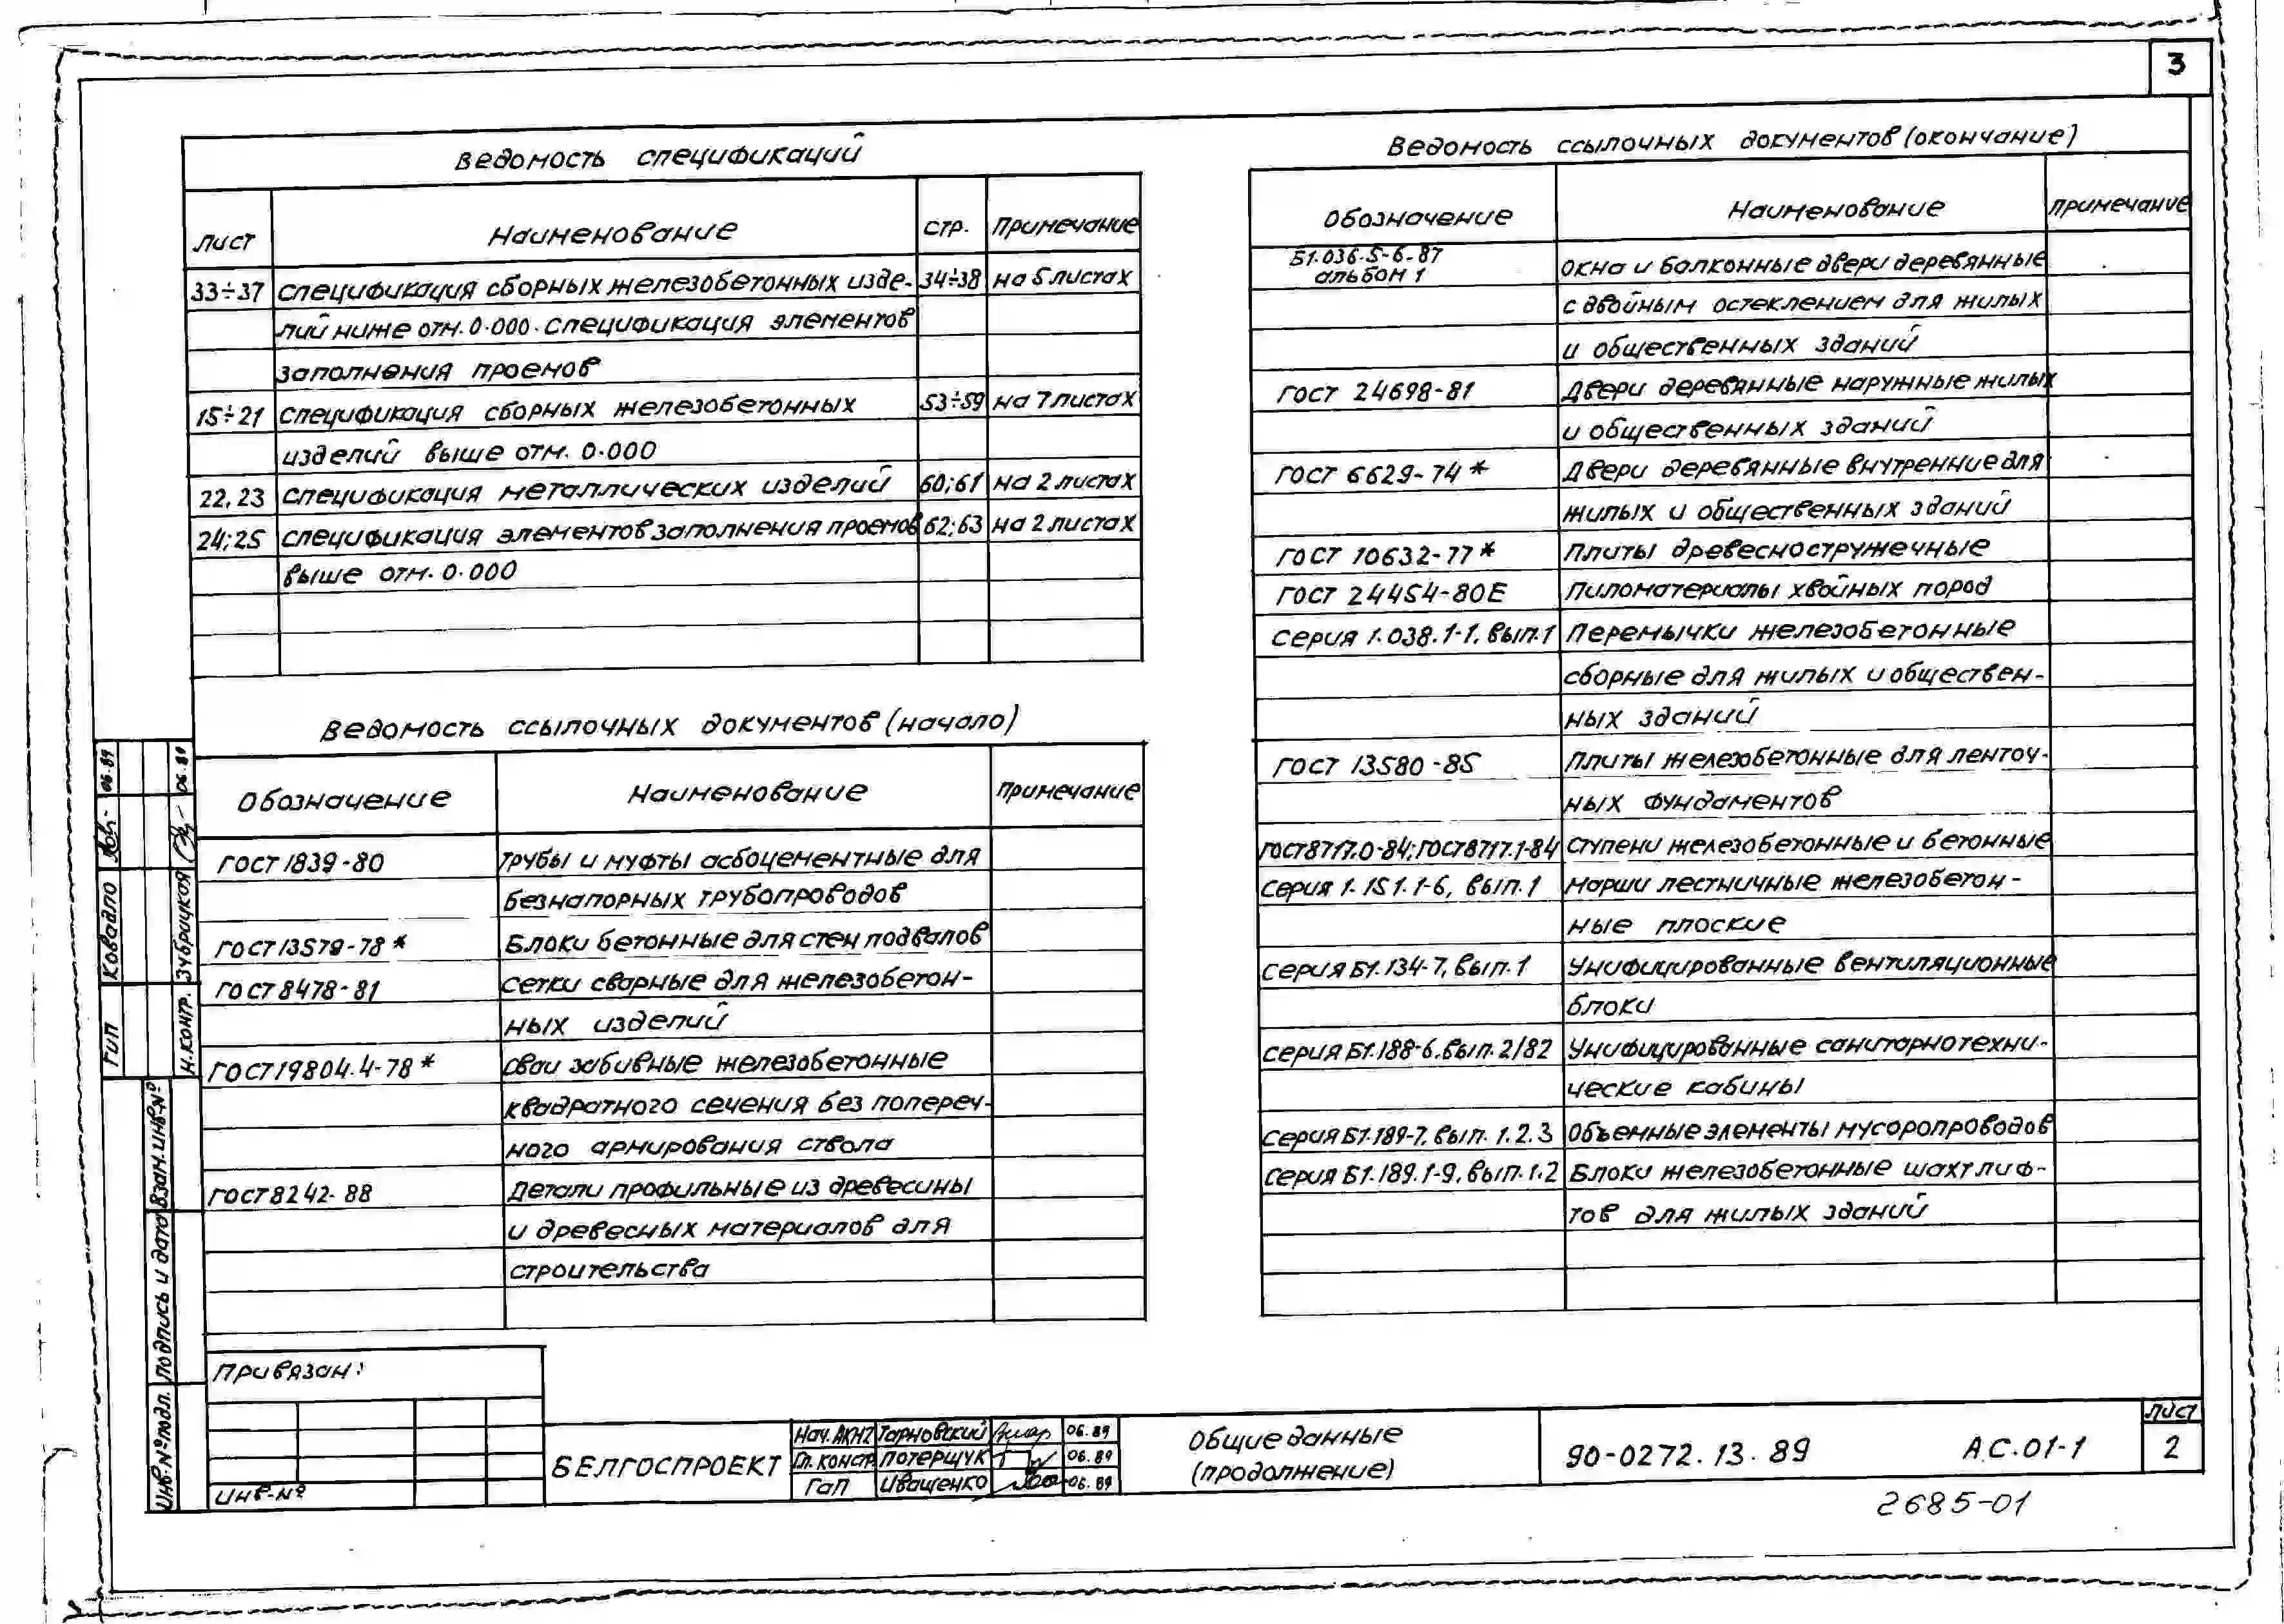 3
Ведомость спецификаций
Лист Наименование Стр. Примечание
33÷37 Спецификация сборных железобетонных изде- 34÷38 на 5 листах
лий ниже отм. 0.000. Спецификация элементов
заполнения проемов
15÷21 Спецификация сборных железобетонных 53÷59 на 7 листах
изделий выше отм. 0.000
22, 23 Спецификация металлических изделий 60; 61 на 2 листах
24; 25 Спецификация элементов заполнения проемов 62; 63 на 2 листах
выше отм. 0.000
Ведомость ссылочных документов (начало)
Обозначение Наименование Примечание
ГОСТ 1839-80 Трубы и муфты асбоцементные для
безнапорных трубопроводов
ГОСТ 13579-78* Блоки бетонные для стен подвалов
ГОСТ 8478-81 Сетки сварные для железобетон-
ных изделий
ГОСТ 19804.4-78* Сваи забивные железобетонные
квадратного сечения без попереч-
ного армирования ствола
ГОСТ 8242-88 Детали профильные из древесины
и древесных материалов для
строительства
Ведомость ссылочных документов (окончание)
Обозначение Наименование Примечание
Б1.036.5-6.87 Окна и балконные двери деревянные
альбом 1
с двойным остеклением для жилых
и общественных зданий
ГОСТ 24698-81 Двери деревянные наружные жилых
и общественных зданий
ГОСТ 6629-74* Двери деревянные внутренние для
жилых и общественных зданий
ГОСТ 10632-77* Плиты древесностружечные
ГОСТ 24454-80Е Пиломатериалы хвойных пород
Серия 1.038.1-1, вып.1 Перемычки железобетонные
сборные для жилых и обществен-
ных зданий
ГОСТ 13580-85 Плиты железобетонные для ленточ-
ных фундаментов
ГОСТ 8717.0-84; ГОСТ 8717.1-84 Ступени железобетонные и бетонные
Серия 1.151.1-6, вып.1 Марши лестничные железобетон-
ные плоские
Серия Б1.134-7, вып.1 Унифицированные вентиляционные
блоки
Серия Б1.188-6, вып. 2/82 Унифицированные санитарнотехни-
ческие кабины
Серия Б1.189-7, вып. 1.2.3 Объемные элементы мусоропроводов
Серия Б1.189.1-9, вып.1.2 Блоки железобетонные шахт лиф-
тов для жилых зданий
ГИП Ковадло 06.89
Н.контр. Зубрицкая 06.89
Взам.инв.№
Подпись и дата
Инв.№ подл.
Привязан:
Инв.№
БЕЛГОСПРОЕКТ
Нач. АКМ2 Тарновский 06.89
Гл. констр. Потерщук 06.89
ГАП Иващенко 06.89
Общие данные
(продолжение)
90-0272.13.89 АС.01-1
Лист
2
2685-01